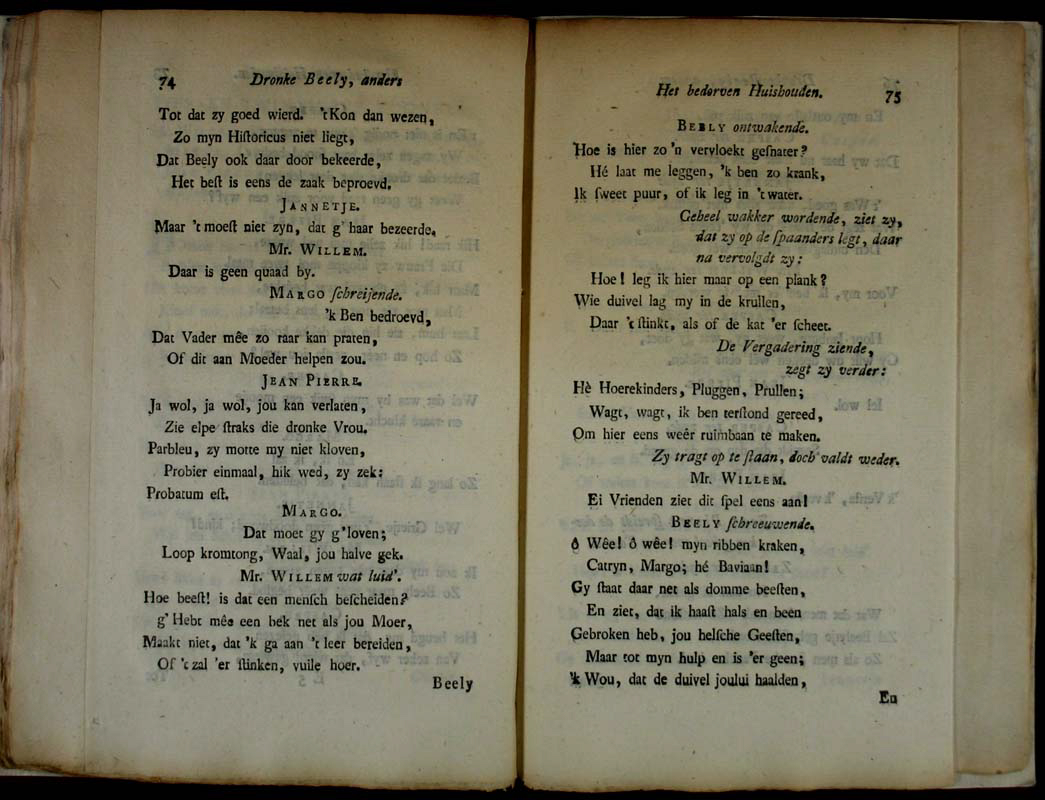 74 Dronke Beely, anders
Tot dat zy goed wierd. 't Kon dan wezen,
Zo myn Hiſtoricus niet liegt,
Dat Beely ook daar door bekeerde,
Het beſt is eens de zaak beproevd.
JANNETJE.
Maar 't moeſt niet zyn, dat g' haar bezeerde.
Mr. WILLEM.
Daar is geen quaad by.
MARGO ſchreijende.
'k Ben bedroevd,
Dat Vader mêe zo raar kan praten,
Of dit aan Moeder helpen zou.
JEAN PIERRE.
Ja wol, ja wol, jou kan verlaten,
Zie elpe ſtraks die dronke Vrou.
Parbleu, zy motte my niet kloven,
Probier einmaal, hik wed, zy zek:
Probatum eſt.
MARGO.
Dat moet gy g'loven;
Loop kromtong, Waal, jou halve gek.
Mr. WILLEM wat luid'.
Hoe beeſt! is dat een menſch beſcheiden?
g' Hebt mêe een bek net als jou Moer,
Maakt niet, dat 'k ga aan 't leer bereiden,
Of 't zal 'er ſtinken, vuile hoer.
Beely
Het bedorven Huishouden. 75
BEELY ontwakende.
Hoe is hier zo 'n vervloekt geſnater?
Hé laat me leggen, 'k ben zo krank,
Ik ſweet puur, of ik leg in 't water.
Geheel wakker wordende, ziet zy,
dat zy op de ſpaanders legt, daar
na vervolgdt zy:
Hoe! leg ik hier maar op een plank?
Wie duivel lag my in de krullen,
Daar 't ſtinkt, als of de kat 'er ſcheet.
De Vergadering ziende,
zegt zy verder:
Hè Hoerekinders, Pluggen, Prullen;
Wagt, wagt, ik ben terſtond gereed,
Om hier eens weêr ruimbaan te maken.
Zy tragt op te ſtaan, doch valdt weder.
Mr. WILLEM.
Ei Vrienden ziet dit ſpel eens aan!
BEELY ſchreeuwende.
ô Wêe! ô wêe! myn ribben kraken,
Catryn, Margo; hé Baviaan!
Gy ſtaat daar net als domme beeſten,
En ziet, dat ik haaſt hals en been
Gebroken heb, jou helſche Geeſten,
Maar tot myn hulp en is 'er geen;
'k Wou, dat de duivel joului haalden,
En